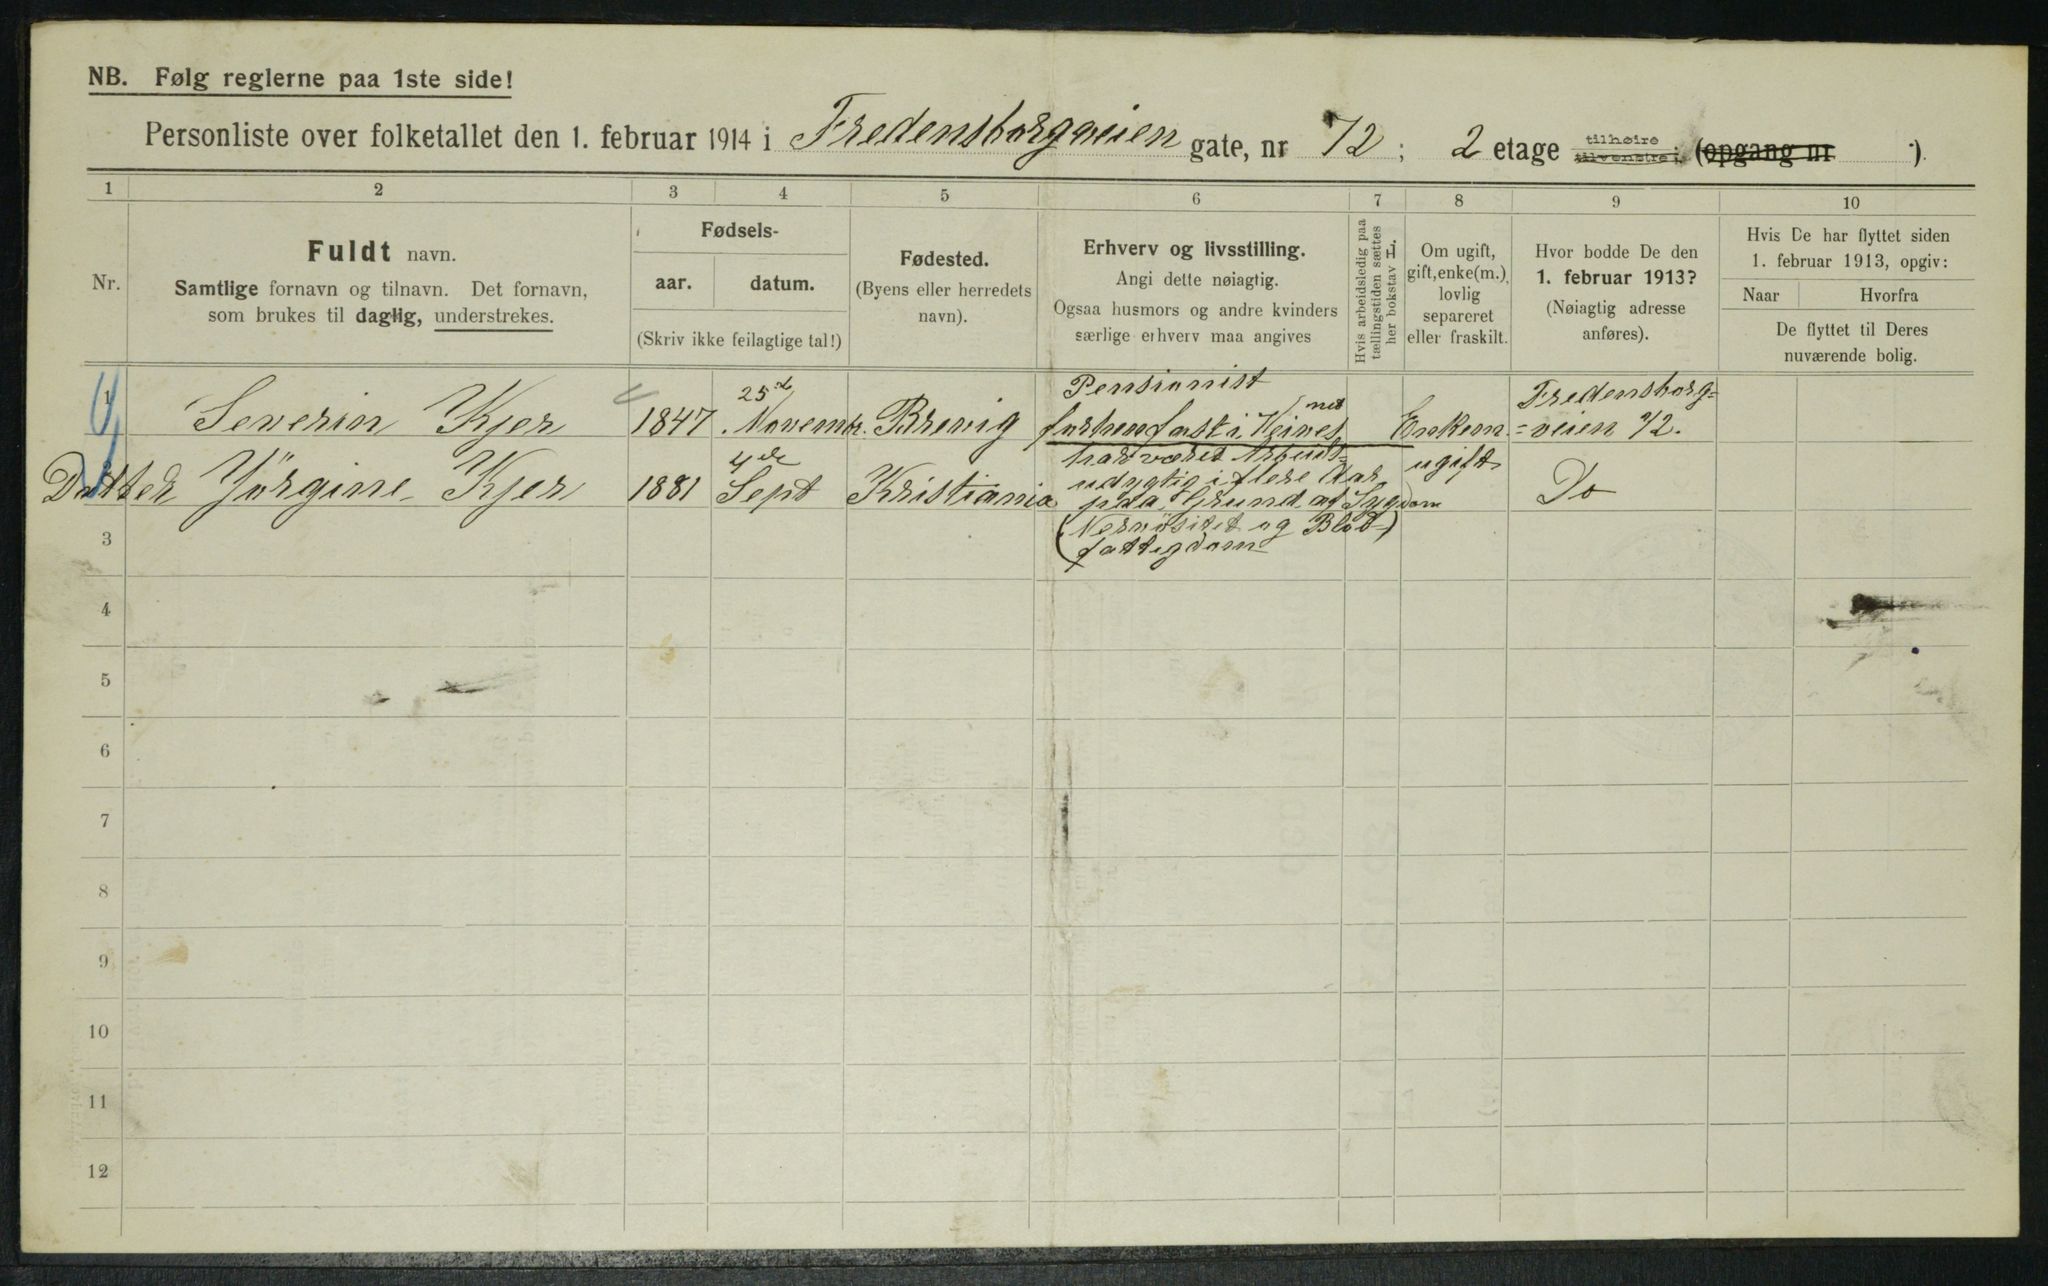 NB. Følg reglerne paa 1ste side!
Personliste over folketallet den 1. februar 1914 i Fredensborgveien gate, nr 72; 2 etage tilhøire tilvenstre (opgang nr )
1 2 3 4 5 6 7 8 9 10
Nr.
Fuldt navn.
Samtlige fornavn og tilnavn. Det fornavn,
som brukes til daglig, understrekes.
Fødsels-
aar. datum.
(Skriv ikke feilagtige tal!)
Fødested.
(Byens eller herredets
navn).
Erhverv og livsstilling.
Angi dette nøiagtig.
Ogsaa husmors og andre kvinders
særlige erhverv maa angives
Hvis arbeidsledig paa
tællingstiden sættes
her bokstav L.
Om ugift,
gift, enke(m.),
lovlig
separeret
eller fraskilt.
Hvor bodde De den
1. februar 1913?
(Nøiagtig adresse
anføres).
Hvis De har flyttet siden
1. februar 1913, opgiv:
Naar Hvorfra
De flyttet til Deres
nuværende bolig.
1 Severin Kjer 1847 25de Novembr. Brevig
Pensionist
forhen
Enkem.
Fredensborg=
=veien 72.
Datter Jörgine Kjer 1881 4de Sept Kristiania
har været Arbeids=
udygtig i flere Aar
paa Grund af Sygdom
(Nervösitet og Blod-)
fattigdom
ugift
Do
3
4
5
6
7
8
9
10
11
12